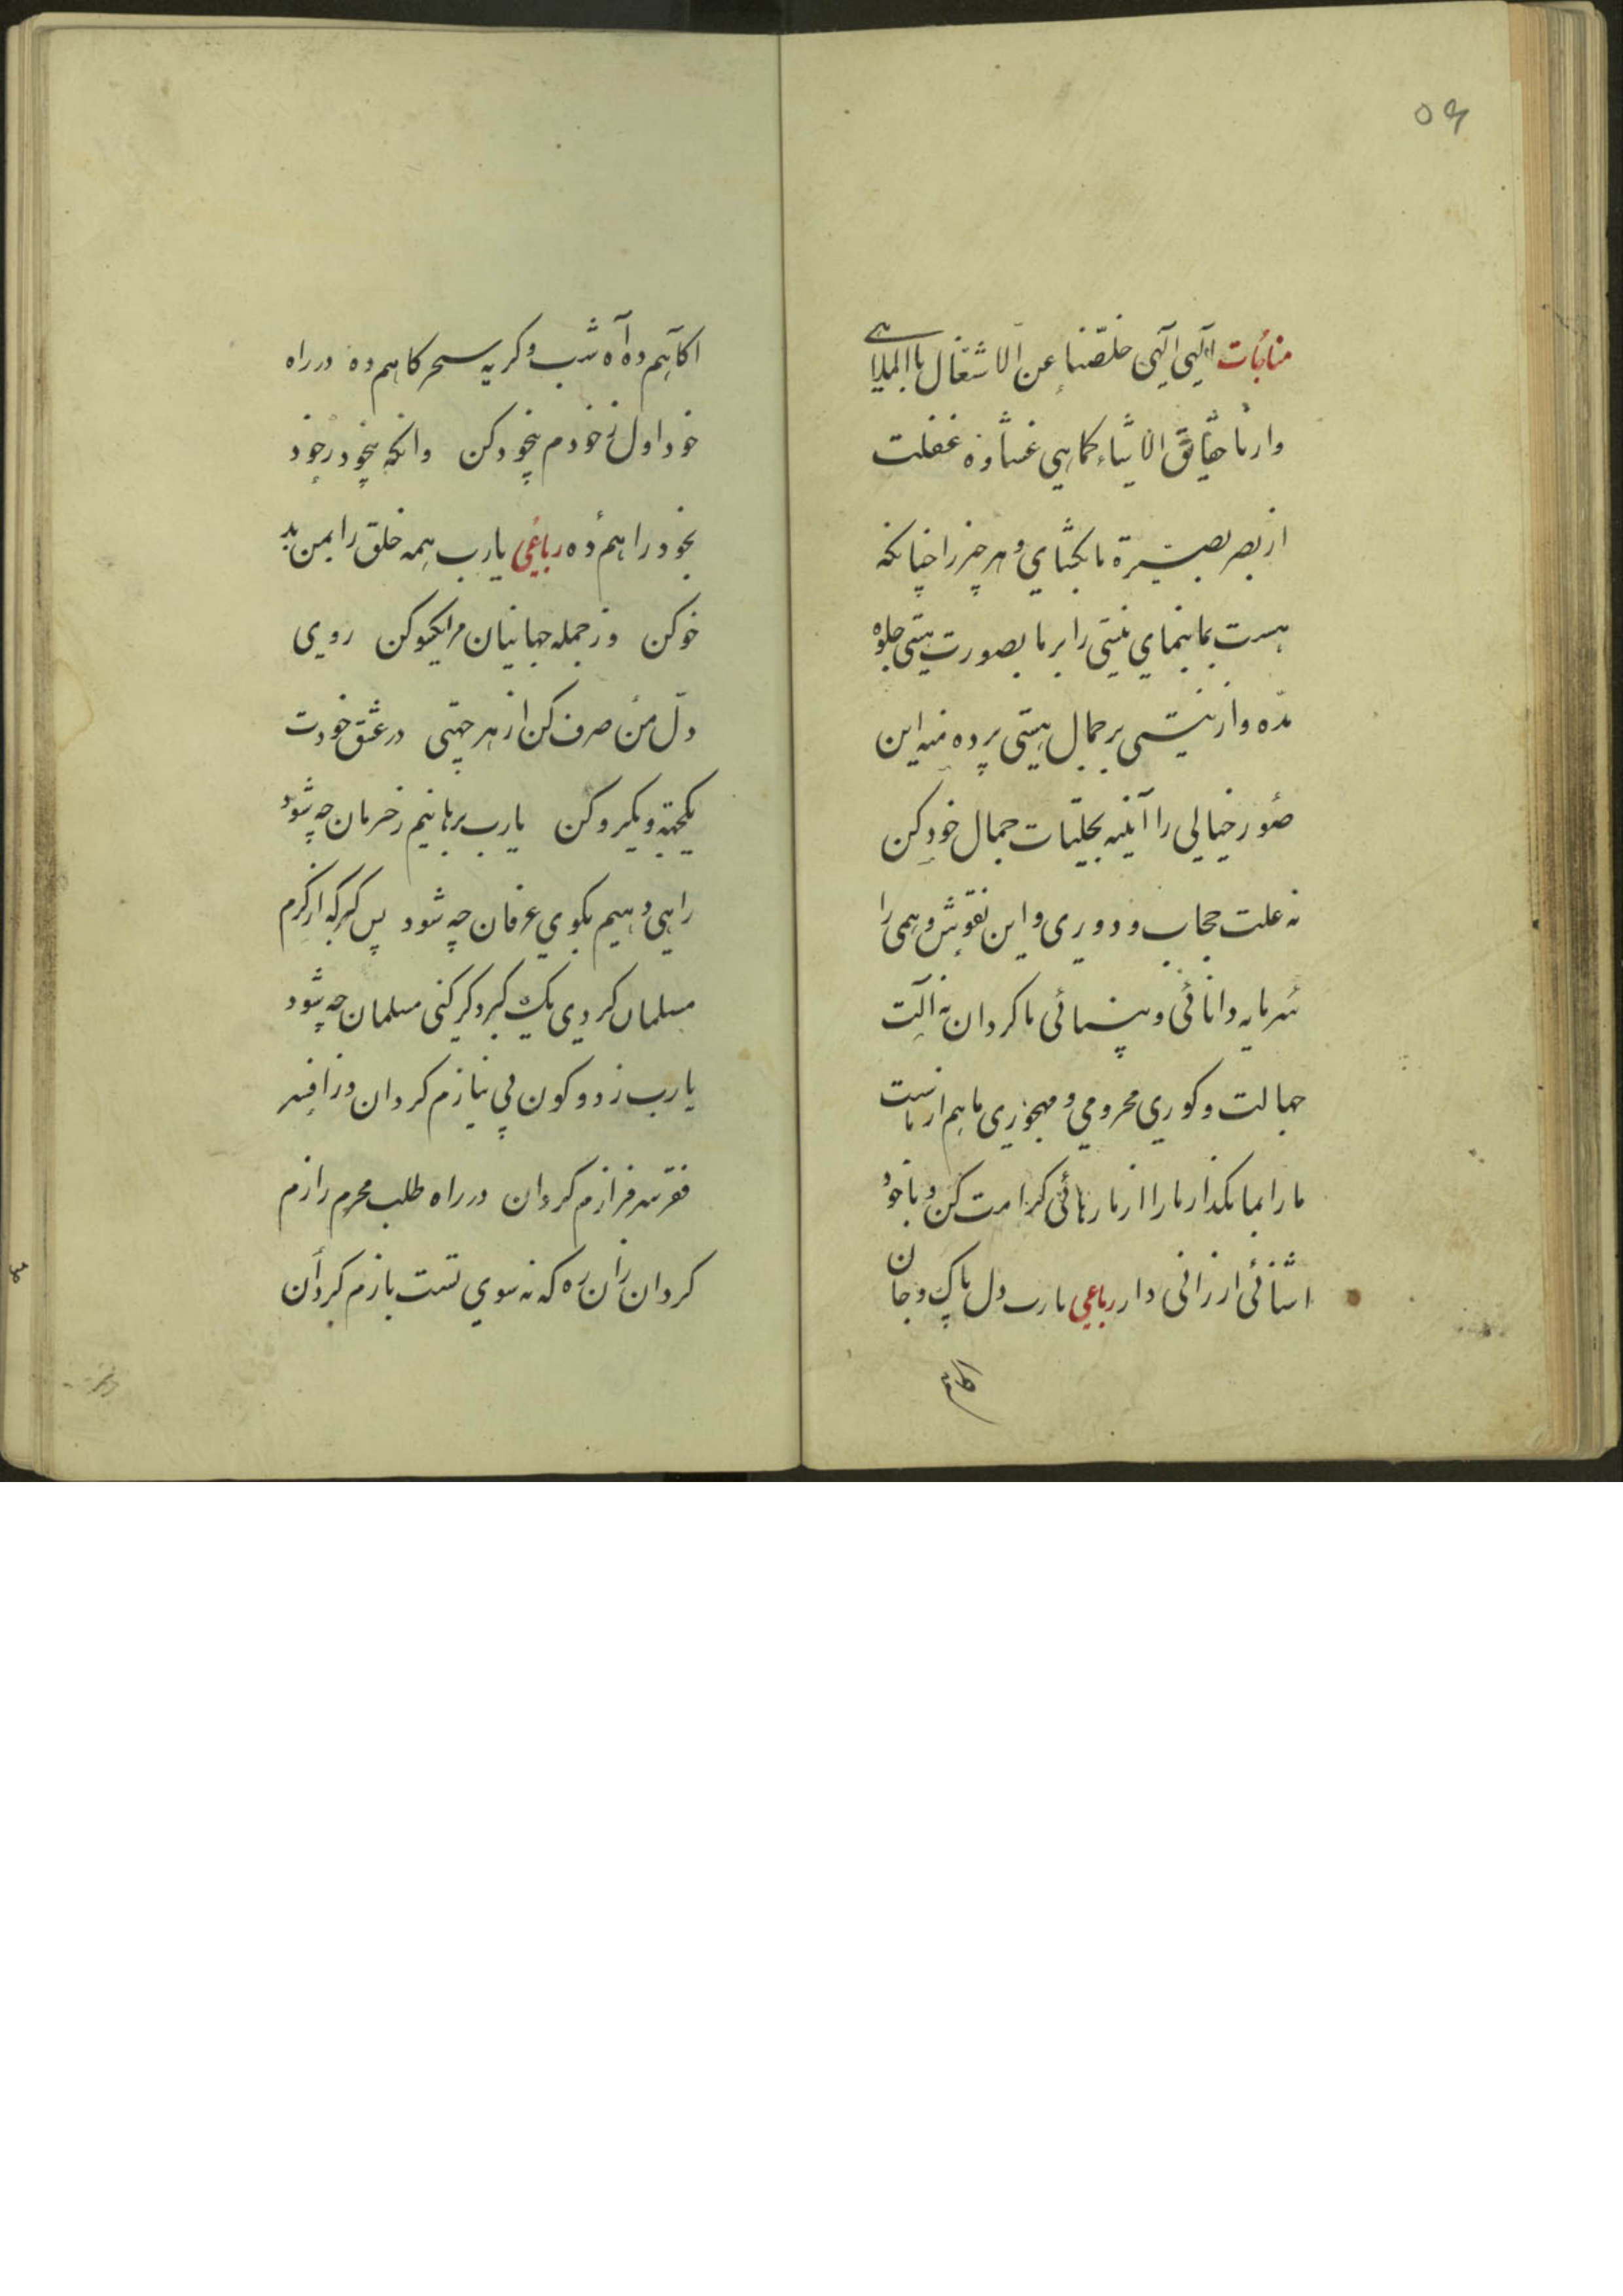 ۵۹
مناجات الهی الهی خلصنا عن الاشتغال بالملاهی
وارنا حقایق الاشیاء کماهیی غشاوه غفلت
از بصر بصیرة ما بکشای و هر چیز را چنانکه
هست بما بنمای نیستی را بر ما بصورت هستی جلوه
مده واز نیستی بر جمال هستی پرده منه این
صور خیالی را آئینه تجلیات جمال خود کن
نه علت حجاب و دوری و این نقوش وهمی را
سرمایه دانائی و بینائی ما کردان نه آلت
جهالت و کوری محرومی و مهجوری ما هم از ماست
ما را بما مکذار ما را از ما رهائی کرامت کن و با خود
اشنائی ارزانی دار رباعی یارب دل پاک و جان
اکاهم
اکاهم ده آه شب و کریه سحر کاهم ده در راه
خود اول ز خودم بیخود کن وانکه بیخود ز خود
بخود راهم ده رباعی یارب همه خلق را بمن بد
خو کن وز جمله جهانیان مرا یکسو کن روی
دل من صرف کن از هر جهتی در عشق خودت
یکجهة و یکرو کن یارب برهانیم ز حرمان چه شود
راهی دهیم بکوی عرفان چه شود بس کبر که از کرم
مسلمان کردی یک کبر دکر کنی مسلمان چه شود
یارب ز دو کون بی نیازم کردان وز افسر
فقر سرفرازم کردان در راه طلب محرم رازم
کردان زان ره که نه سوی تست بازم کردان